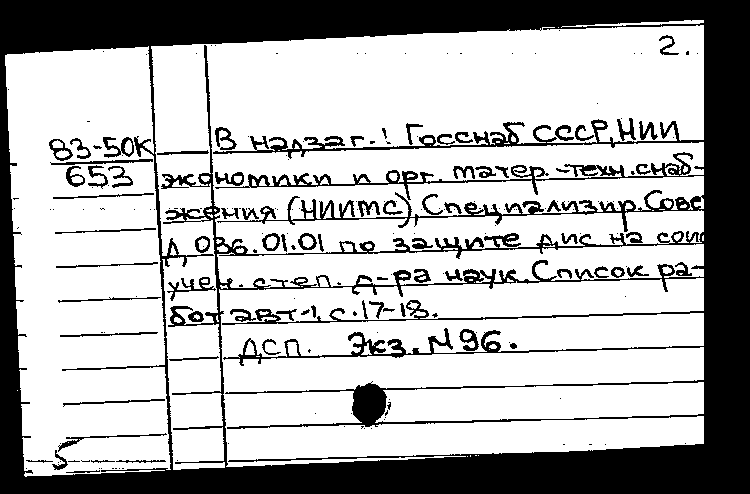 2.
83-50К
653
В надзаг.: Госснаб СССР, НИИ
экономики и орг. матер.-техн. снаб-
жения (НИИМС), Специализир. Сове
Д 036.01.01 по защите дис на соис
учен. степ. д-ра наук. Список ра-
бот авт.: с. 17-18.
ДСП. Экз. N 96.
5